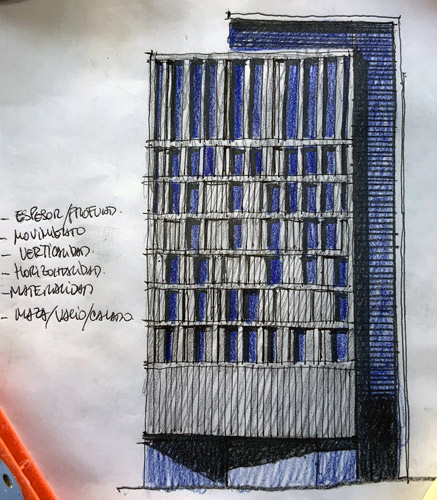 - ESPESOR/PROFUND.
- MOVIMIENTO
- VERTICALIDAD.
- HORIZONTALIDAD.
- MATERIALIDAD
- MAZA/VACIO/CALADO.